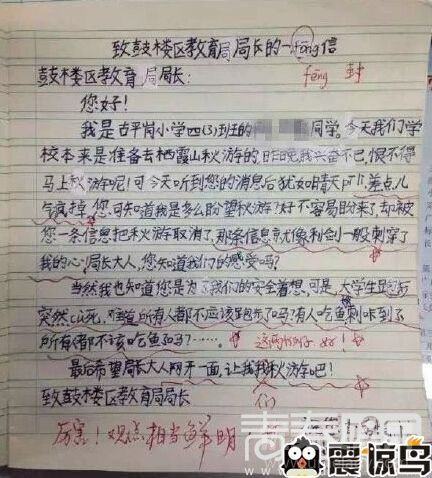 致鼓楼区教育局局长的一fēng信
fēng 封
鼓楼区教育局局长:
您好!
我是古平岗小学四(3)班的 同学,今天我们学
校本来是准备去栖霞山秋游的,昨晚我兴奋不已,恨不得
马上秋游呢!可今天听到您的消息后犹如晴天pī lì,差点儿
气疯掉。您可知道我是多么盼望秋游?好不容易盼来了,却被
您一条信息把秋游取消了,那条信息就像利剑一般刺穿了
我的心,局长大人,您知道我们的感受吗?
当然我也知道您是为了我们的安全着想,可是,大学生跑步
突然cù死,难道所有人都不应该跑步了吗?有人吃鱼刺咔到了
所有人都不该吃鱼了吗?……。 这两个例子好!
最后希望局长大人网开一面,让我们秋游吧!
致鼓楼区教育局局长
们
厉害!观点相当鲜明
震惊鸟